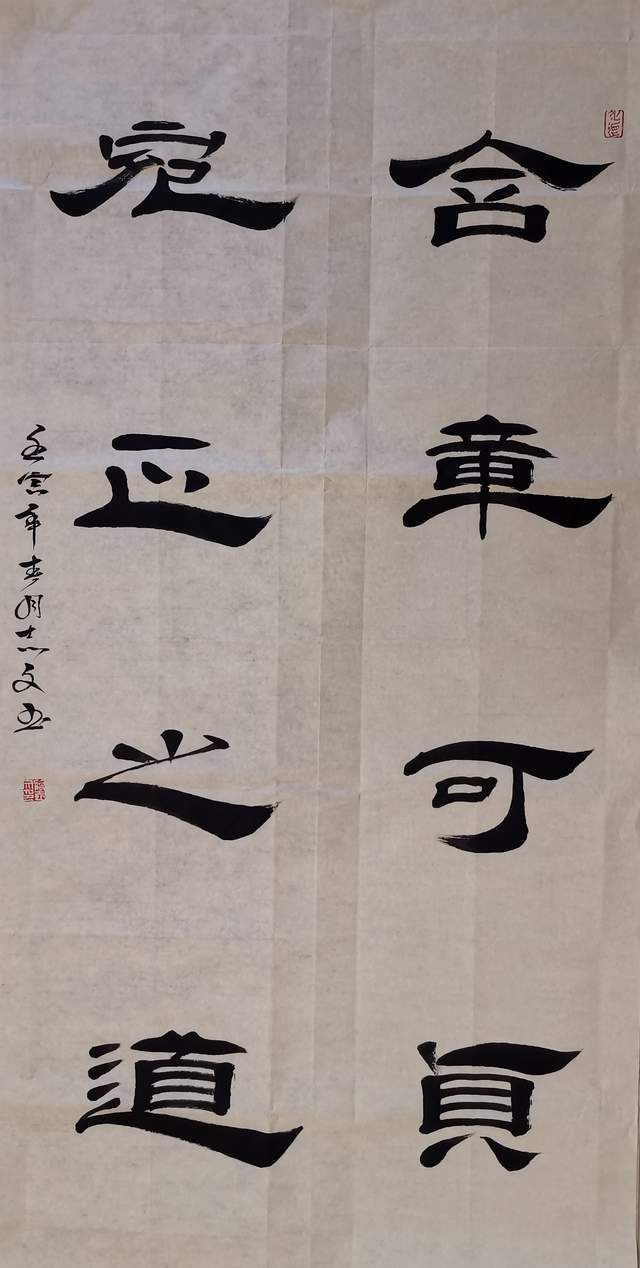 含章可貞
宛正之道
壬寅年春月志文书